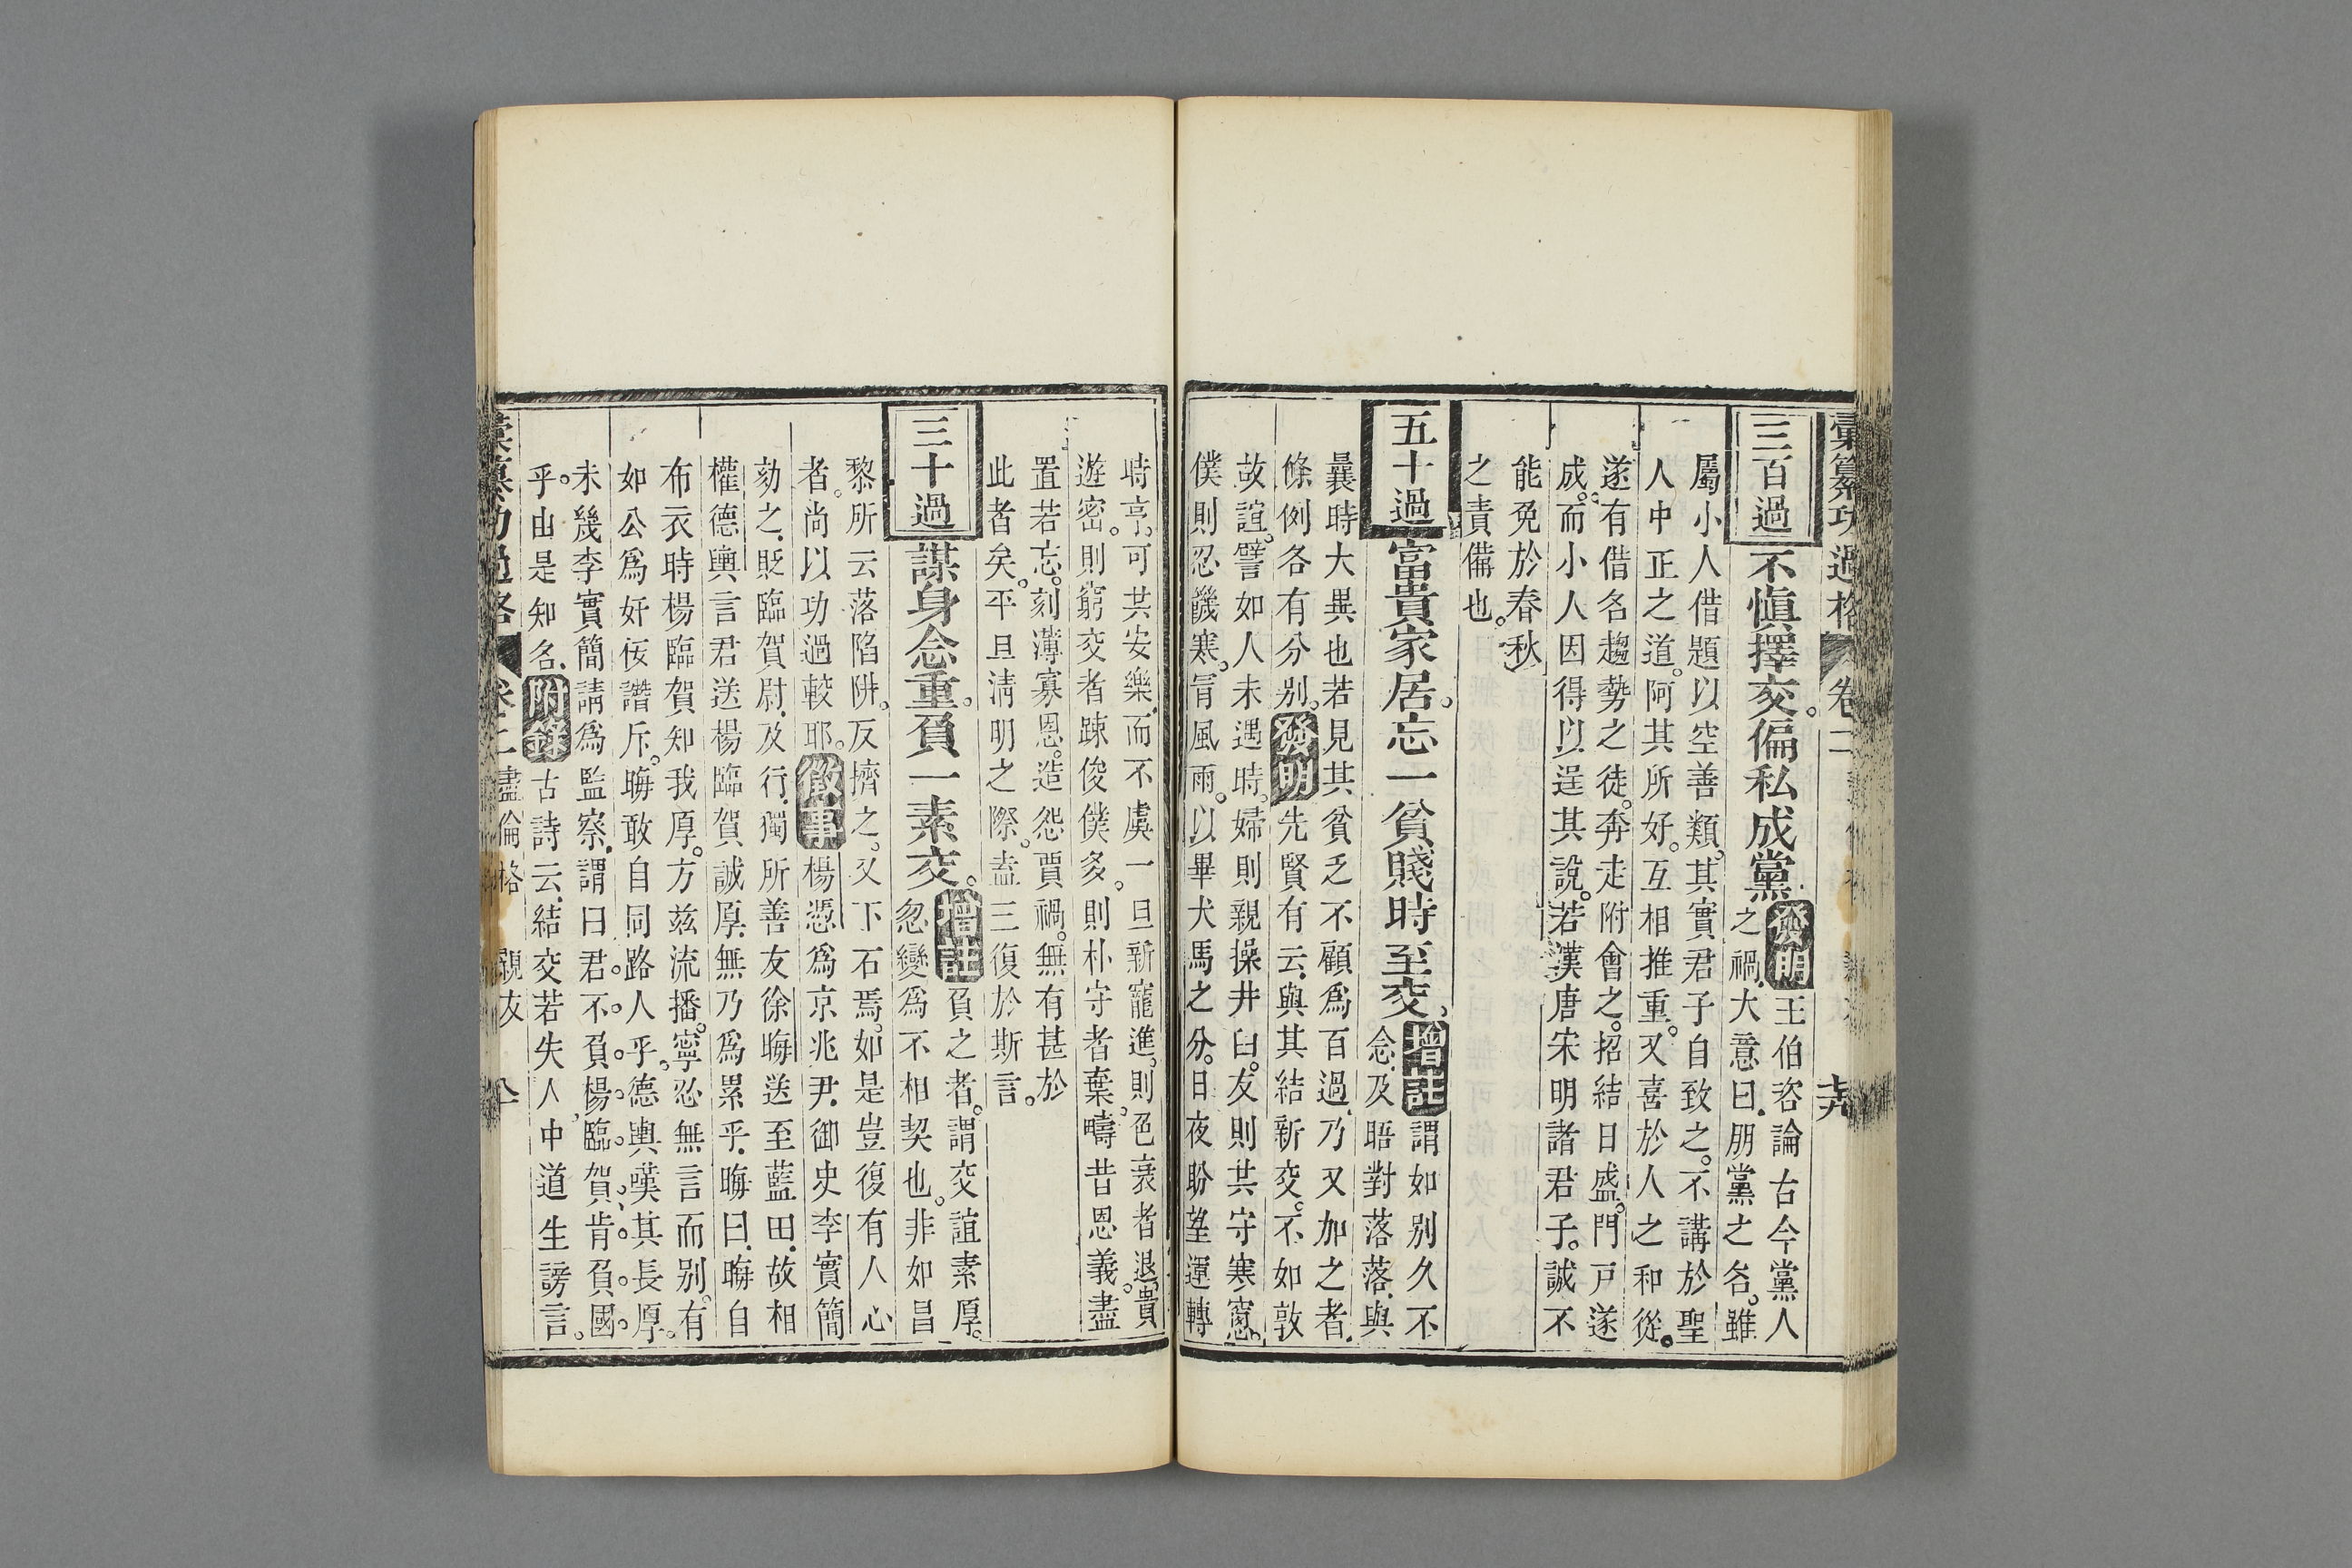 彙纂功過格 卷二 七十九
三百過 不愼擇交。偏私成黨。發明 王伯咨論古今黨人
之禍。大意曰。朋黨之名。雖
屬小人借題以空善類。其實君子自致之。不講於聖
人中正之道。阿其所好。互相推重。又喜於人之和從。
遂有借名趨勢之徒。奔走附會之。招結日盛。門戸遂
成。而小人因得以逞其說。若漢唐宋明諸君子。誠不
能免於春秋
之責備也。
五十過 富貴家居。忘一貧賤時至交。增註 謂如别久不
念。及晤對落落。與
曩時大異也若見其貧乏不顧爲百過。乃又加之者。
條例各有分别。發明 先賢有云。與其結新交。不如敦
故誼。譬如人未遇時。婦則親操井臼。友則共守寒窻。
僕則忍饑寒。冐風雨。以畢犬馬之分。日夜盼望運轉
時亨。可共安樂。而不虞一旦新寵進。則色衰者退。貴
遊密。則窮交者踈俊僕多。則朴守者棄。疇昔恩義。盡
置若忘。刻薄寡恩。造怨賈禍。無有甚於
此者矣。平旦淸明之際。盍三復於斯言。
三十過 謀身念重。負一素交。增註 負之者。謂交誼素厚。
忽變爲不相契也。非如昌
黎所云落陷阱。反擠之。又下石焉。如是豈復有人心
者。尚以功過較耶。徵事 楊憑爲京兆尹。御史李實簡
劾之。貶臨賀尉。及行。獨所善友徐晦送至藍田。故相
權德輿言君送楊臨賀誠厚。無乃爲累乎。晦曰。晦自
布衣時楊臨賀知我厚。方兹流播。寧忍無言而别。有
如公爲奸佞譖斥。晦敢自同路人乎。德輿嘆其長厚。
未幾李實簡請爲監察。謂曰君不負楊臨賀。肯負國
乎。由是知名。附錄 古詩云。結交若失人。中道生謗言。
彙纂功過格 卷二 盡倫格 親友 八十